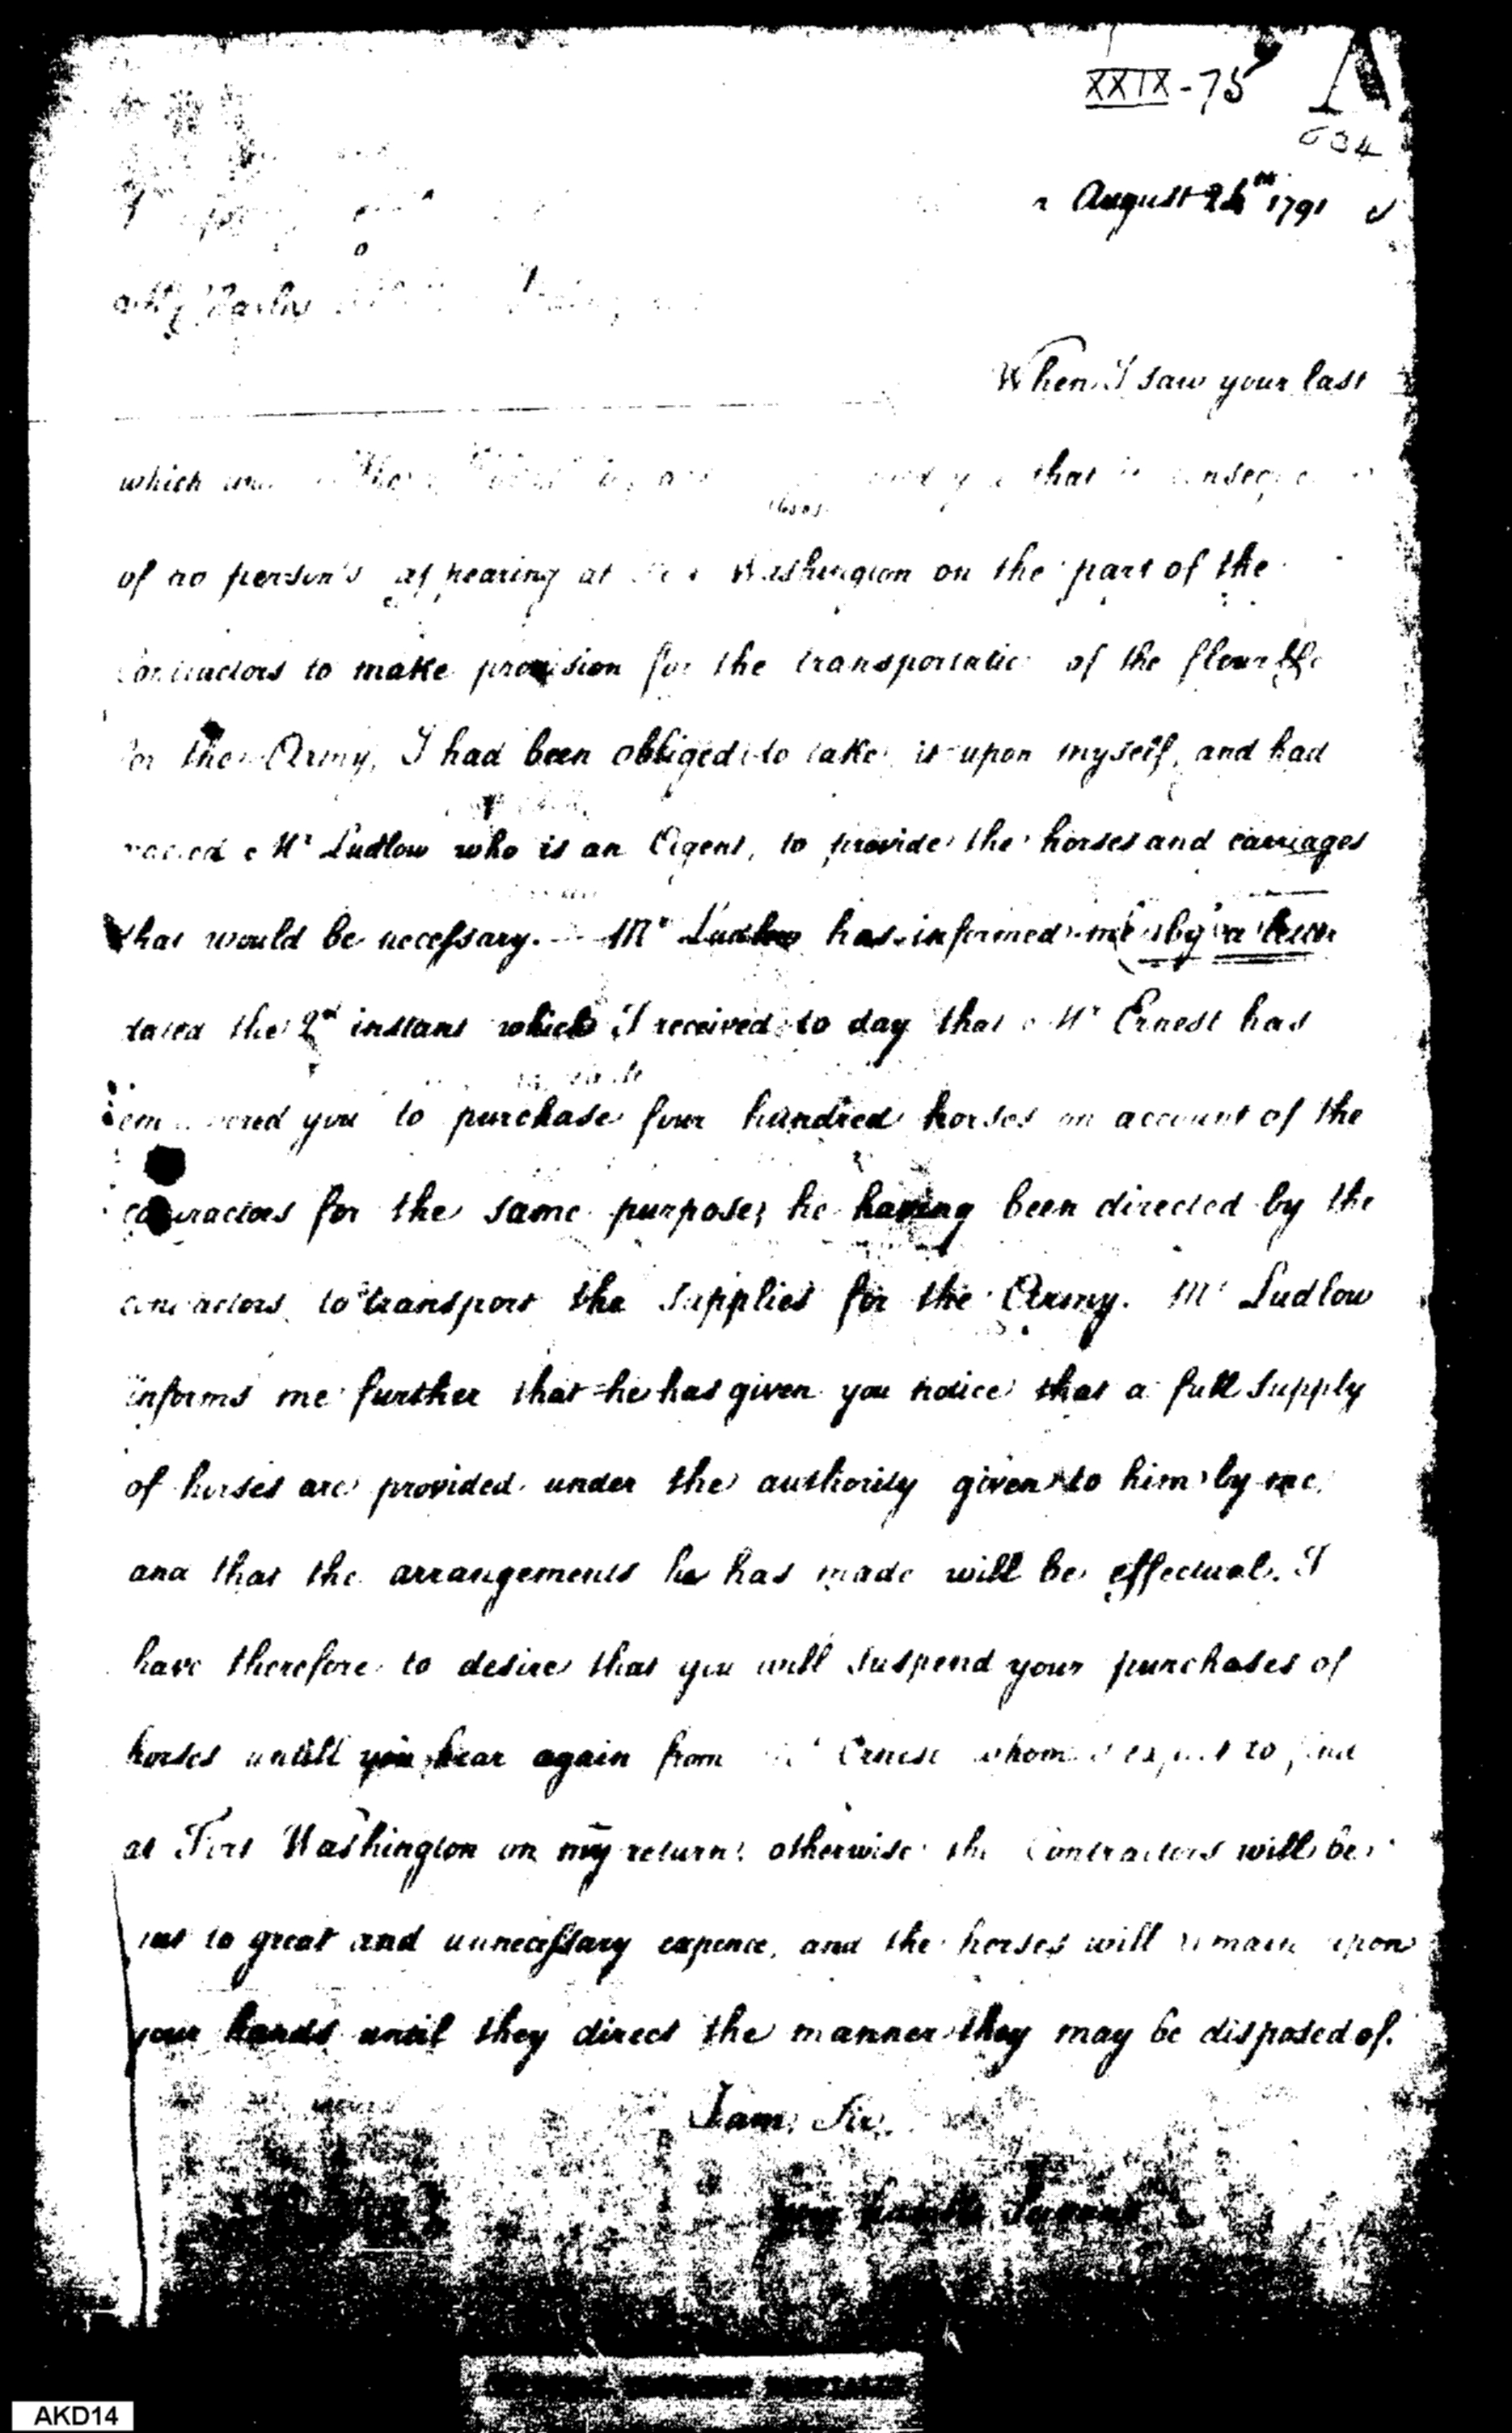 XXIX-75
634
August 1791
When I saw your last
which that
of no person's appearing at Washington on the part of the
Contractors to make provision for the transportatio of the flour &c
for the Army, I had been obliged to take it upon myself, and had
Mr Ludlow who is an Agent, to provide the horses and carriages
that would be necessary. Mr Ludlow has informed me by a letter
dated the 2d instant which I received to day that Mr Ernest has
you to purchase four hundred horses on account of the
contractors for the same purpose; he having been directed by the
contractors to transport the supplies for the Army. Mr Ludlow
informs me further that he has given you notice that a full supply
of horses are provided under the authority given to him by me
and that the arrangements he has made will be effectual. I
have therefore to desire that you will suspend your purchases of
horses untill you hear again from Mr Ernest whom I expect to find
at Fort Washington on my return: otherwise the Contractors will be
put to great and unnecessary expence, and the horses will remain upon
your hands until they direct the manner they may be disposed of.
I am, Sir,
your humble Servant
AKD14